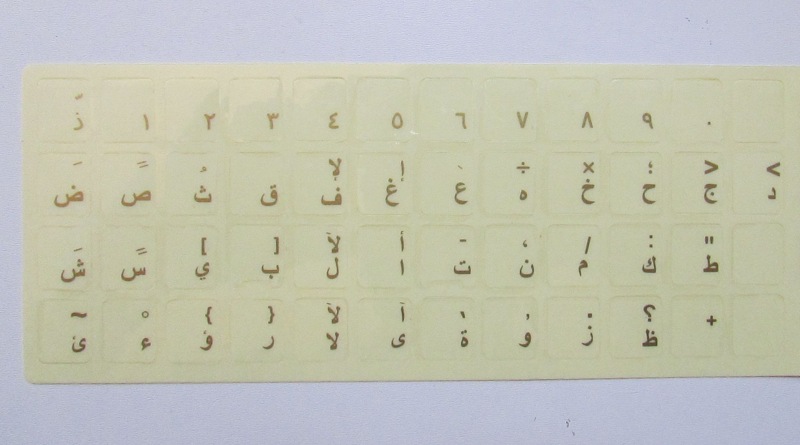 ّ
ذ ١ ٢ ٣ ٤ ٥ ٦ ٧ ٨ ٩ ٠
َ ً ُ لإ إ ` ÷ × ؛ > <
ض ص ث ق ف غ ع ه خ ح ج د
[ ] لأ أ - ، / : "
ش س ي ب ل ا ت ن م ك ط
~ ° { } لآ آ ' , . ؟ +
ئ ء ؤ ر لا ى ة و ز ظ